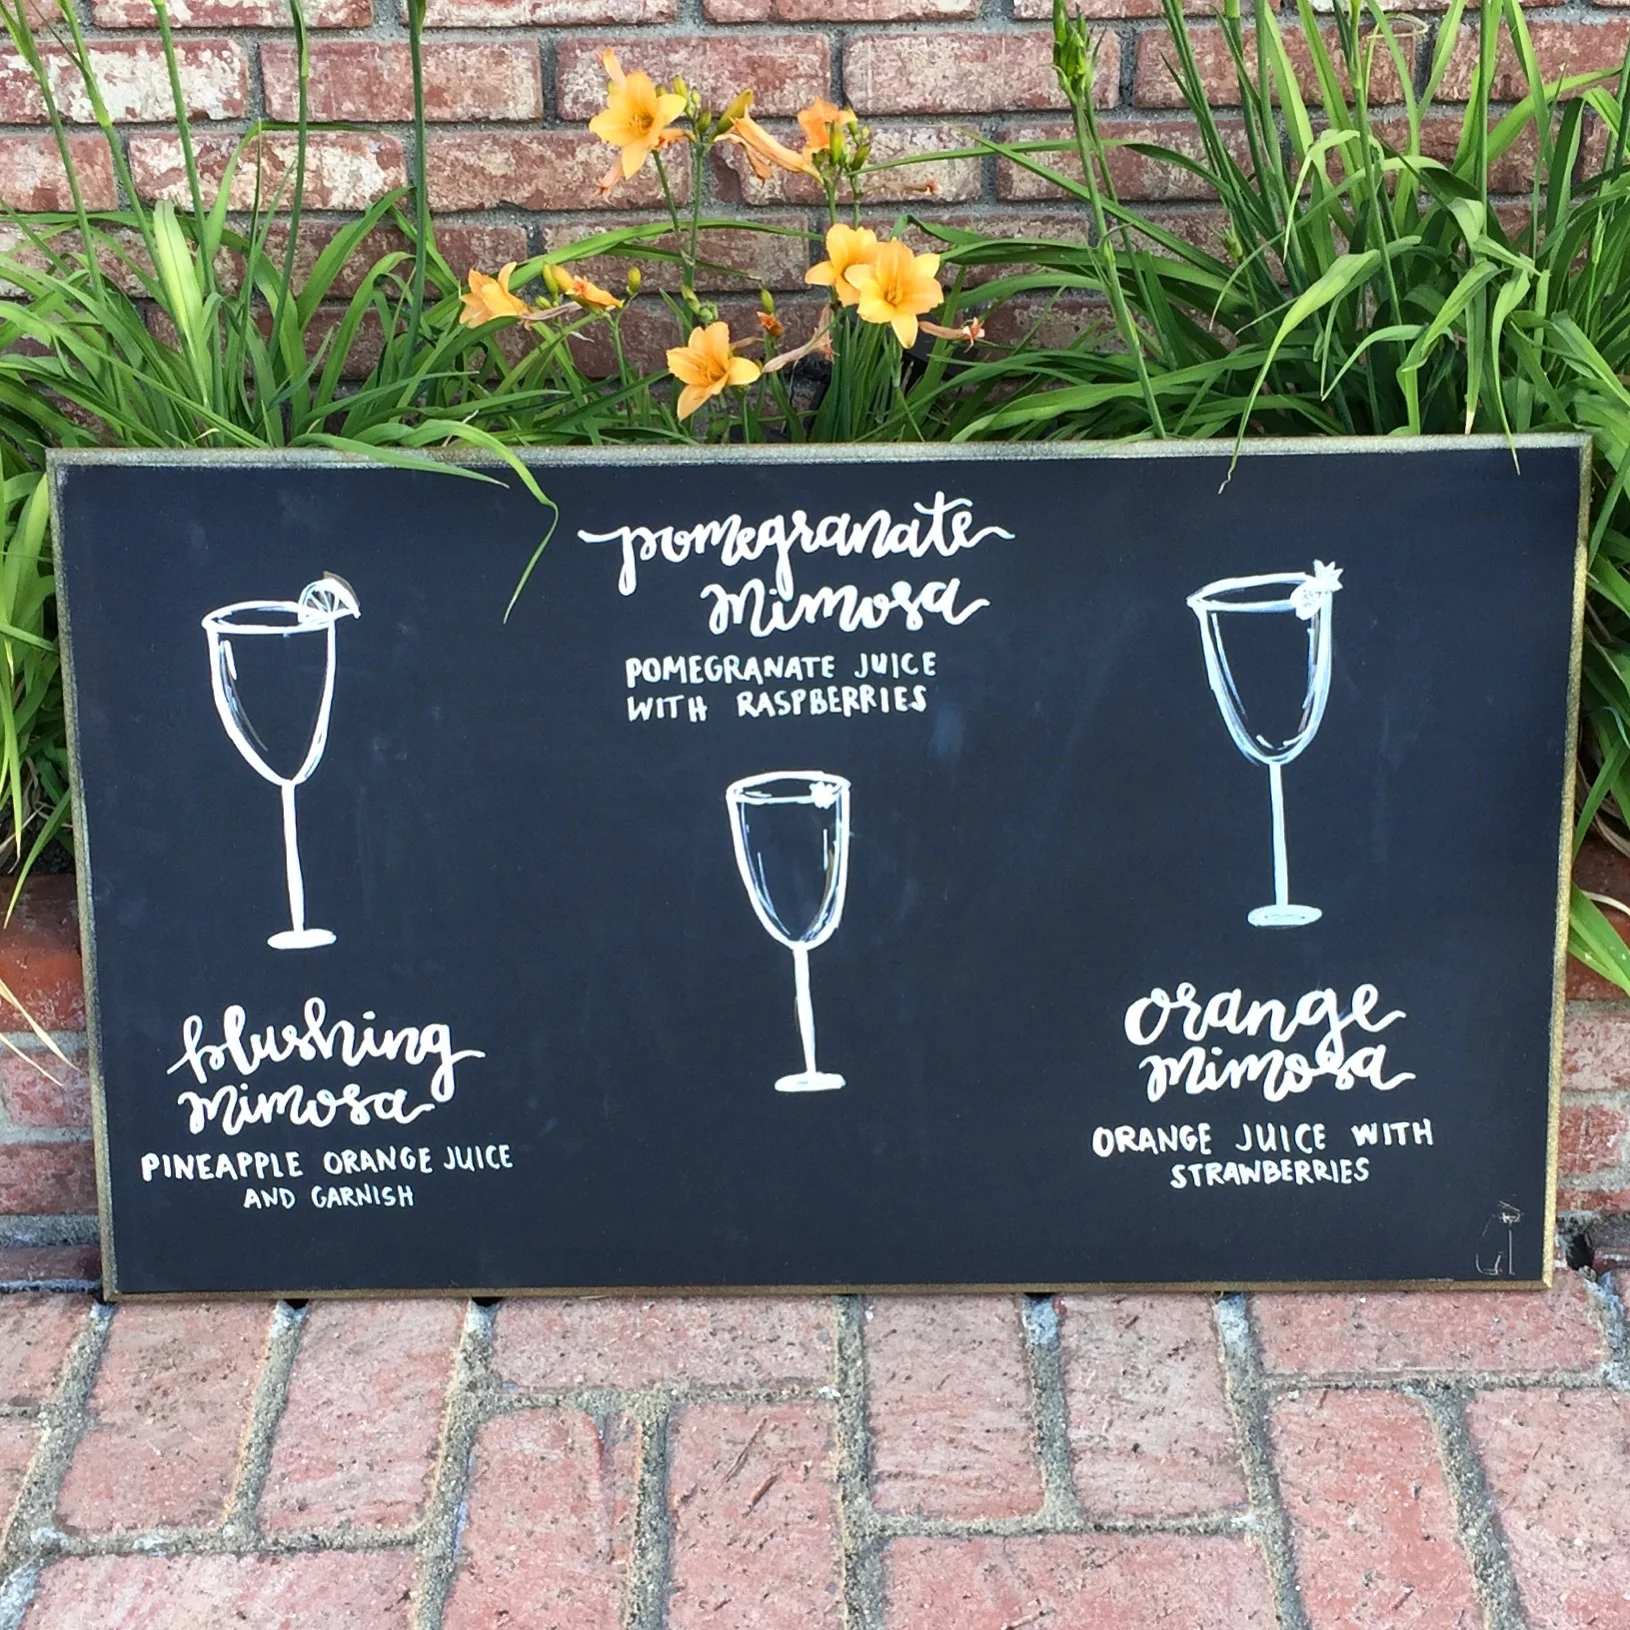 pomegranate
mimosa
POMEGRANATE JUICE
WITH RASPBERRIES
blushing
mimosa
PINEAPPLE ORANGE JUICE
AND GARNISH
orange
mimosa
ORANGE JUICE WITH
STRAWBERRIES